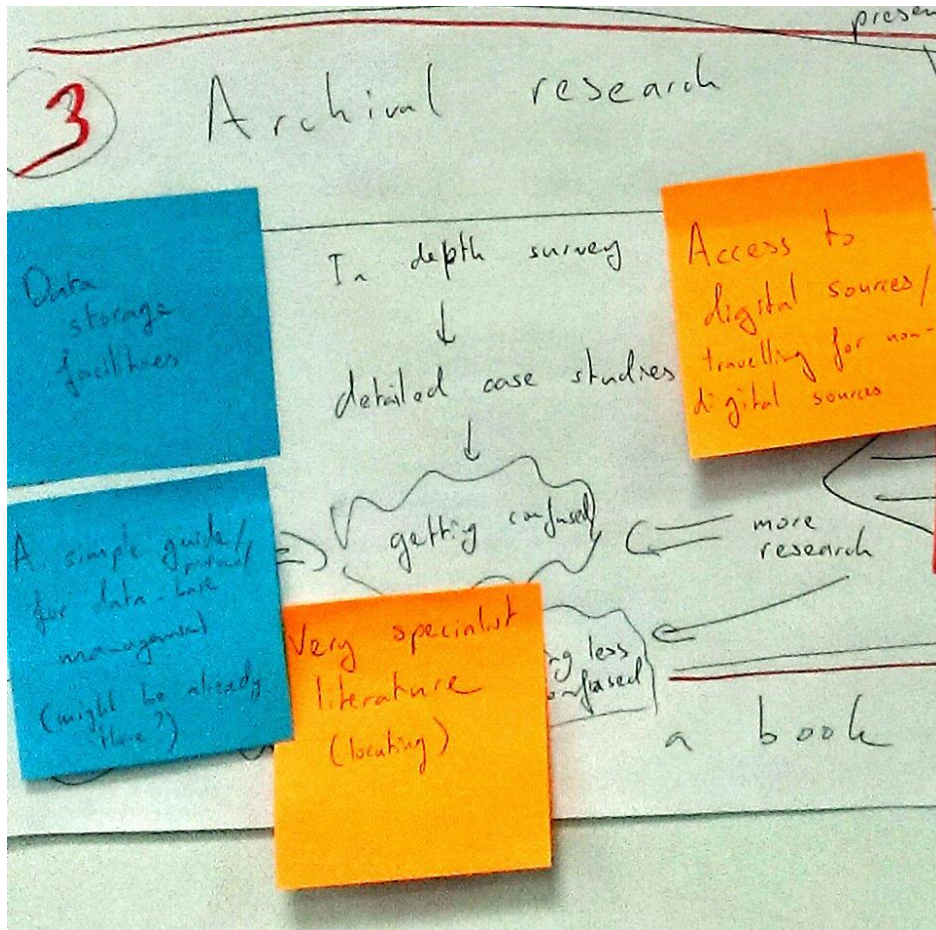 presen
3 Archival research
Data
storage
facilities
In depth survey
↓
detailed case studies
↓
getting confused
Access to
digital sources/
travelling for non-
digital sources
more
research
A simple guide/
protocol
for data-base
management
(might be already
there?)
Very specialist
literature
(locating)
ng less
onfused
a book